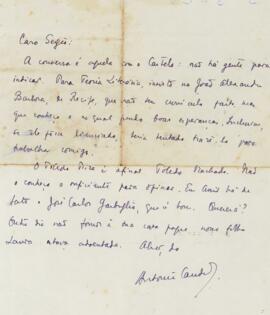 Caro Segis:
A conversa é aquela com o Castelo: não há gente para
indicar. Para Teoria Literária, insisto no João Alexandre
Barbosa, de Recife, que não tem currículo forte, mas
que conheço e no qual ponho boas esperanças. Inclusive,
se ele fica licenciado, seria tentado trazê-lo para
trabalhar comigo.
O Toledo Dizo é afinal Toledo Machado. Não
o conheço o suficiente para opinar. Em Assis há de
fato o José Carlos Garbuglio, que é bom. Quererá?
Outro dia não fomos à sua casa porque nossa filha
Laura estava adoentada. Abraço, do
Antonio Candido